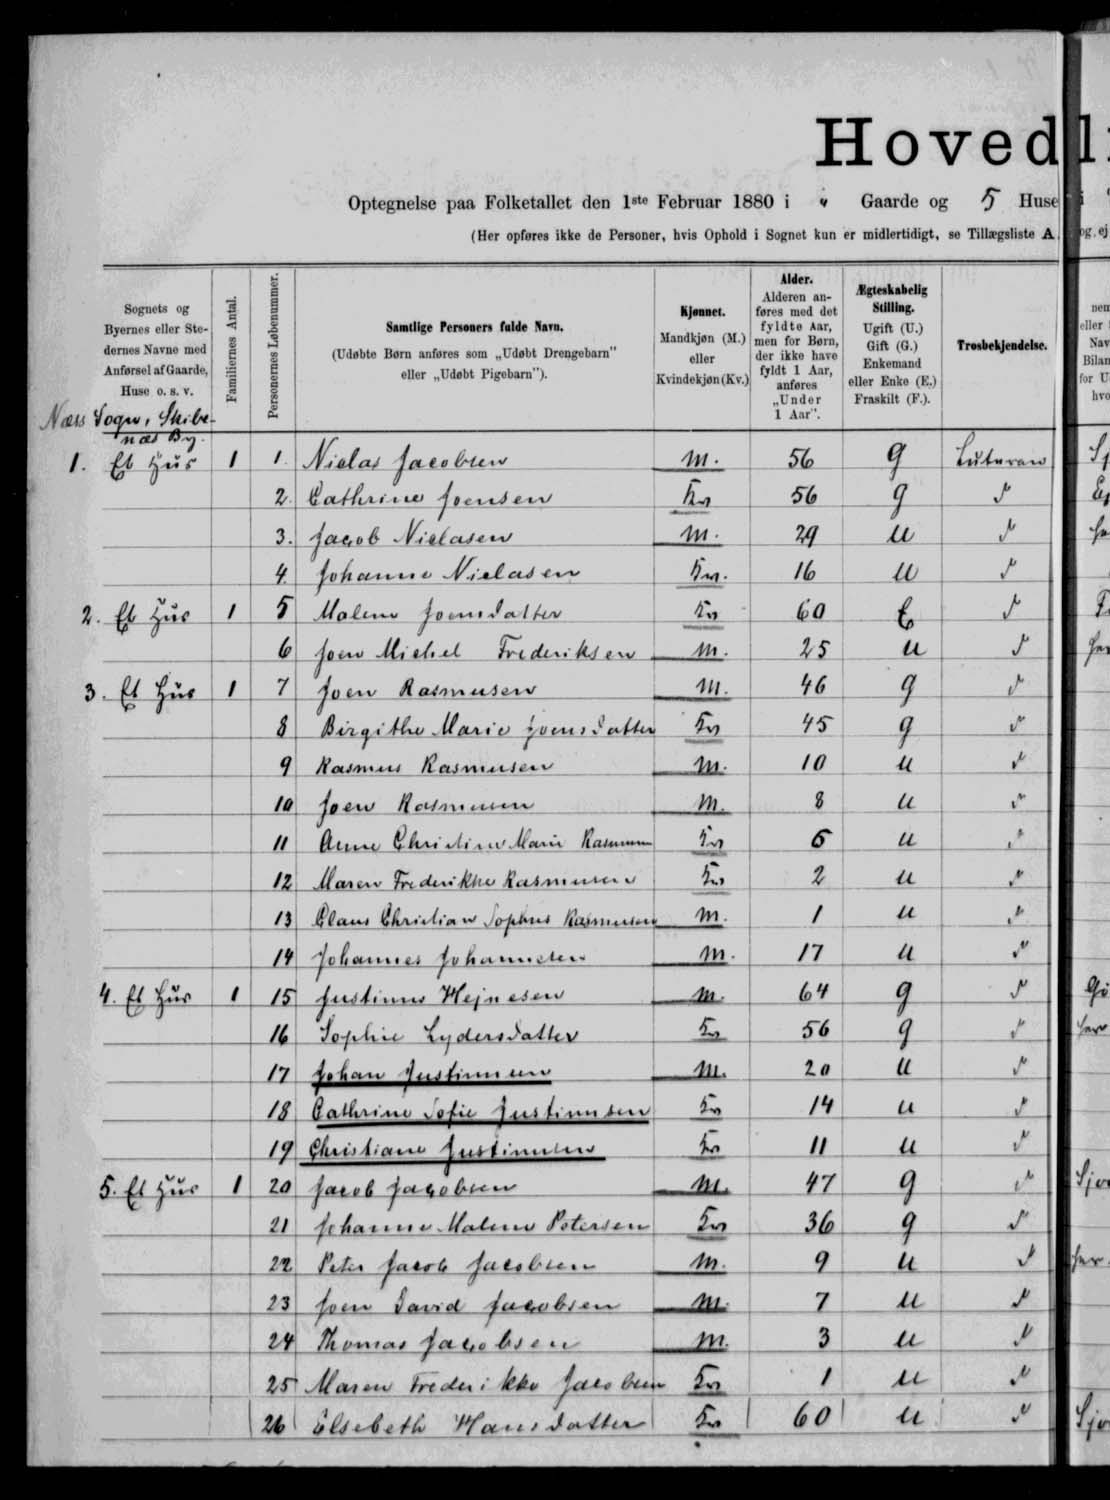 Hovedli
Optegnelse paa Folketallet den 1ste Februar 1880 i " Gaarde og 5 Huse i
(Her opføres ikke de Personer, hvis Ophold i Sognet kun er midlertidigt, se Tillægsliste A. og, ej
Sognets og Byernes eller Ste-dernes Navne med Anførsel af Gaarde, Huse o. s. v.
Familiernes Antal.
Personernes Løbenummer.
Samtlige Personers fulde Navn.
(Udøbte Børn anføres som „Udøbt Drengebarn" eller „Udøbt Pigebarn").
Kjønnet.
Mandkjøn (M.) eller Kvindekjøn (Kv.)
Alder.
Alderen an-føres med det fyldte Aar, men for Børn, der ikke have fyldt 1 Aar, anføres „Under 1 Aar".
Ægteskabelig Stilling.
Ugift (U.) Gift (G.) Enkemand eller Enke (E.) Fraskilt (F.).
Trosbekjendelse.
Næss Sogn, Skibe-
næs By.
1. Et Hus 1 1. Niclas Jacobsen M. 56 g Luteran
2. Cathrine Joensen Kv 56 g
3. Jacob Niclasen M. 29 u
4. Johanne Niclasen Kv. 16 u
2. Et Hus 1 5 Malene Joensdatter Kv 60 E
6 Joen Michel Frederiksen M. 25 u
3. Et Hus 1 7 Joen Rasmusen M. 46 g
8 Birgithe Marie Joensdatter Kv 45 g
9 Rasmus Rasmusen M. 10 u
10 Joen Rasmusen M. 8 u
11 Anne Christine Marie Rasmusen Kv 5 u
12 Maren Frederikke Rasmusen Kv 2 u
13 Claus Christian Sophus Rasmusen M. 1 u
14 Johannes Johannesen M. 17 u
4. Et Hus 1 15 Justinus Hejnesen M. 64 g
16 Sophie Lydersdatter Kv 56 g
17 Johan Justinusen M. 20 u
18 Cathrine Sofie Justinusen Kv 14 u
19 Christiane Justinusen Kv 11 u
5. Et Hus 1 20 Jacob Jacobsen M. 47 g
21 Johanne Malene Petersen Kv 36 g
22 Peter Jacob Jacobsen M. 9 u
23 Joen David Jacobsen M. 7 u
24 Thomas Jacobsen M. 3 u
25 Maren Frederikke Jacobsen Kv 1 u
26 Elsebeth Hansdatter Kv 60 u